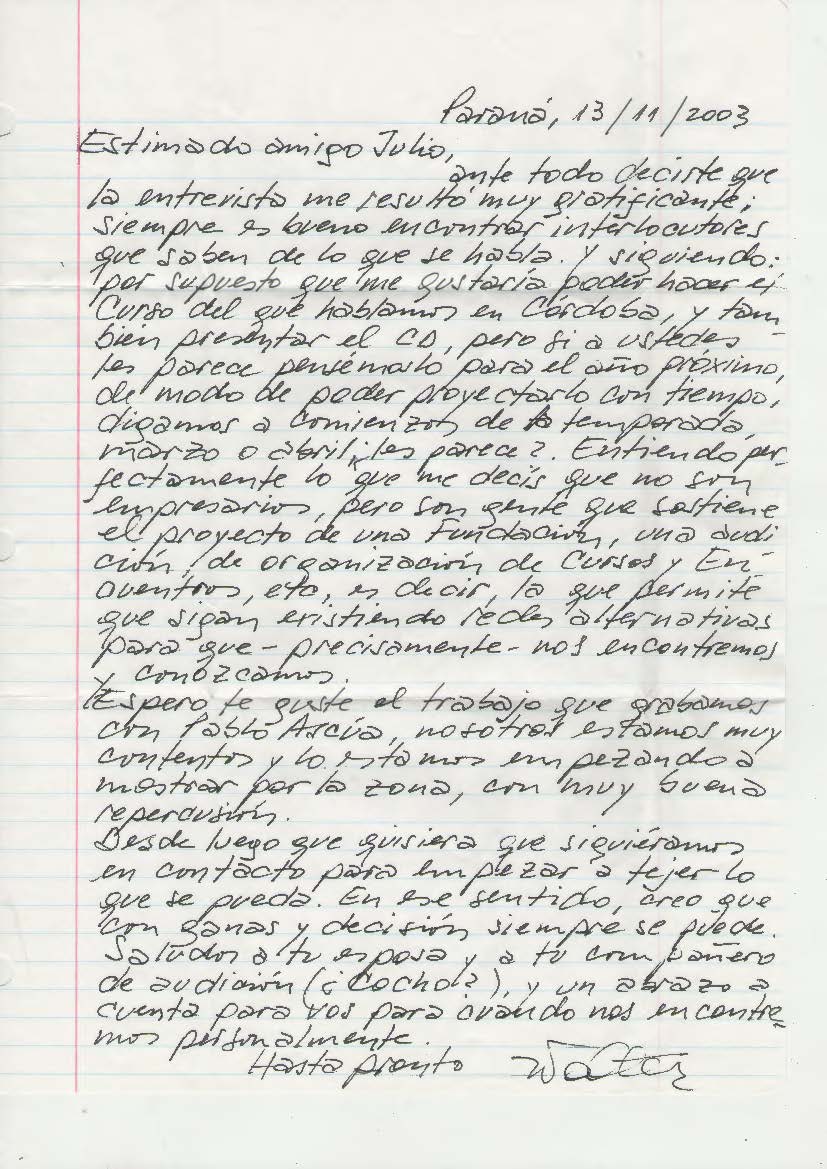 Paraná, 13/11/2003
Estimado amigo Julio,
ante todo decirte que
la entrevista me resultó muy gratificante;
siempre es bueno encontrar interlocutores
que saben de lo que se habla. Y siguiendo:
por supuesto que me gustaría poder hacer el
Curso del que hablamos en Córdoba, y tam
bién presentar el CD, pero si a ustedes
les parece pensémoslo para el año próximo,
de modo de poder proyectarlo con tiempo,
digamos a comienzos de la temporada,
marzo o abril ¿les parece?. Entiendo per-
fectamente lo que me decís que no son
empresarios, pero son gente que sostiene
el proyecto de una Fundación, una audi
ción, de organización de Cursos y En-
cuentros, etc, es decir, la que permite
que sigan existiendo redes alternativas
para que - precisamente - nos encontremos
y conozcamos.
Espero te guste el trabajo que grabamos
con Pablo Ascúa, nosotros estamos muy
contentos y lo estamos empezando a
mostrar por la zona, con muy buena
repercusión.
Desde luego que quisiera que siguiéramos
en contacto para empezar a tejer lo
que se pueda. En ese sentido, creo que
con ganas y decisión siempre se puede.
Saludos a tu esposa y a tu compañero
de audición (¿Cocho?), y un abrazo a
cuenta para vos para cuando nos encontre-
mos personalmente.
Hasta pronto